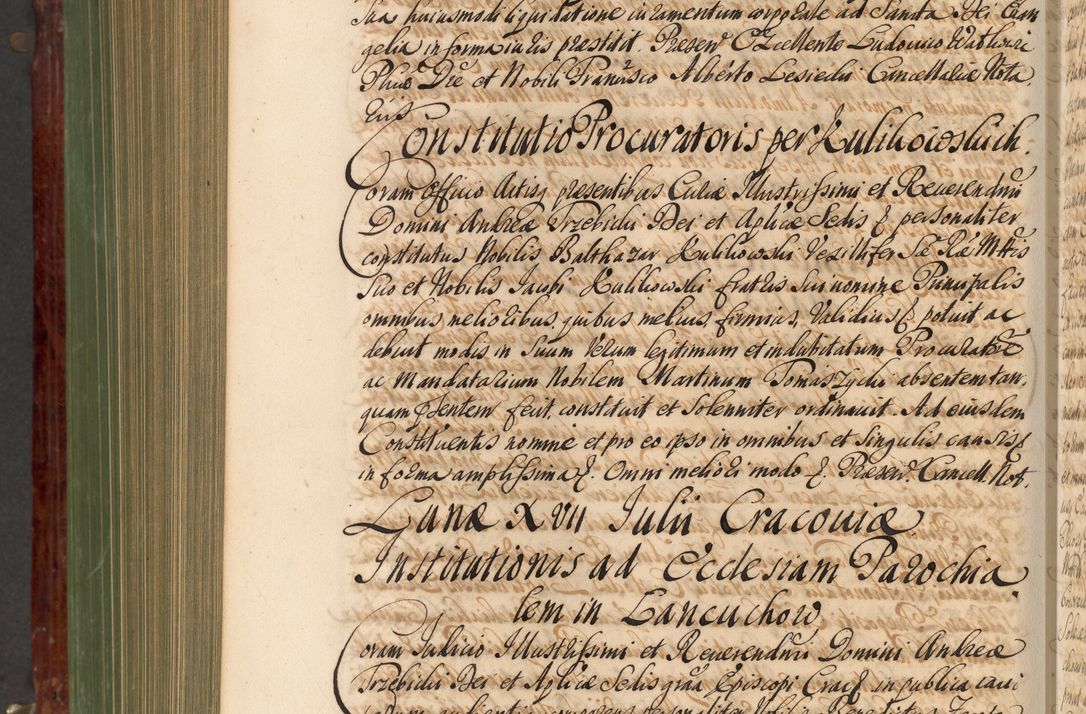 Sua huiusmodi liquidatione iuramentum corporale ad Sancta Dei Evan
gelia in forma iuris præstitit. Præsen. Excellente Ludovico
Phiæ Dre et Nobili Francisco Alberto Lesiecki Cancellariæ Nota
rijs
Constitutio Procuratoris per Kulikowskich.
Coram Officio Actisq præsentibus Curiæ Illustrissimi et Reverendmi
Domini Andreæ Trzebicki Dei et Aplicæ Sedis & personaliter
constitutus Nobilis Balthazar Kulikowski Vexillifer Sæ Ræ Mttis
Suo et Nobilis Jacobi Kulikowski fratris Sui nomine Principalis
omnibus melioribus, quibus melius, firmius, Validius & potuit ac
debuit modis in Suum Verum legitimum et indubitatum Procuratore
ac Mandatarium Nobilem Martinum Tomaszycki absentem tan
quam psentem fecit, constituit et Solenniter ordinavit. Ad eiusdem
Constituentis nomine et pro eo ipso in omnibus et Singulis causis &
in forma amplissima &. Omni meliori modo &. Præsen. Cancell. Not.
Lunæ XVII Julii Cracoviæ
Institutionis ad Ecclesiam Parochia
lem in Lancuchow
Coram Judicio Illustrissimi et Reverendmi Domini Andreæ
Trzebicki Dei et Aplicæ Sedis graa Episcopi Crac & in publica causa